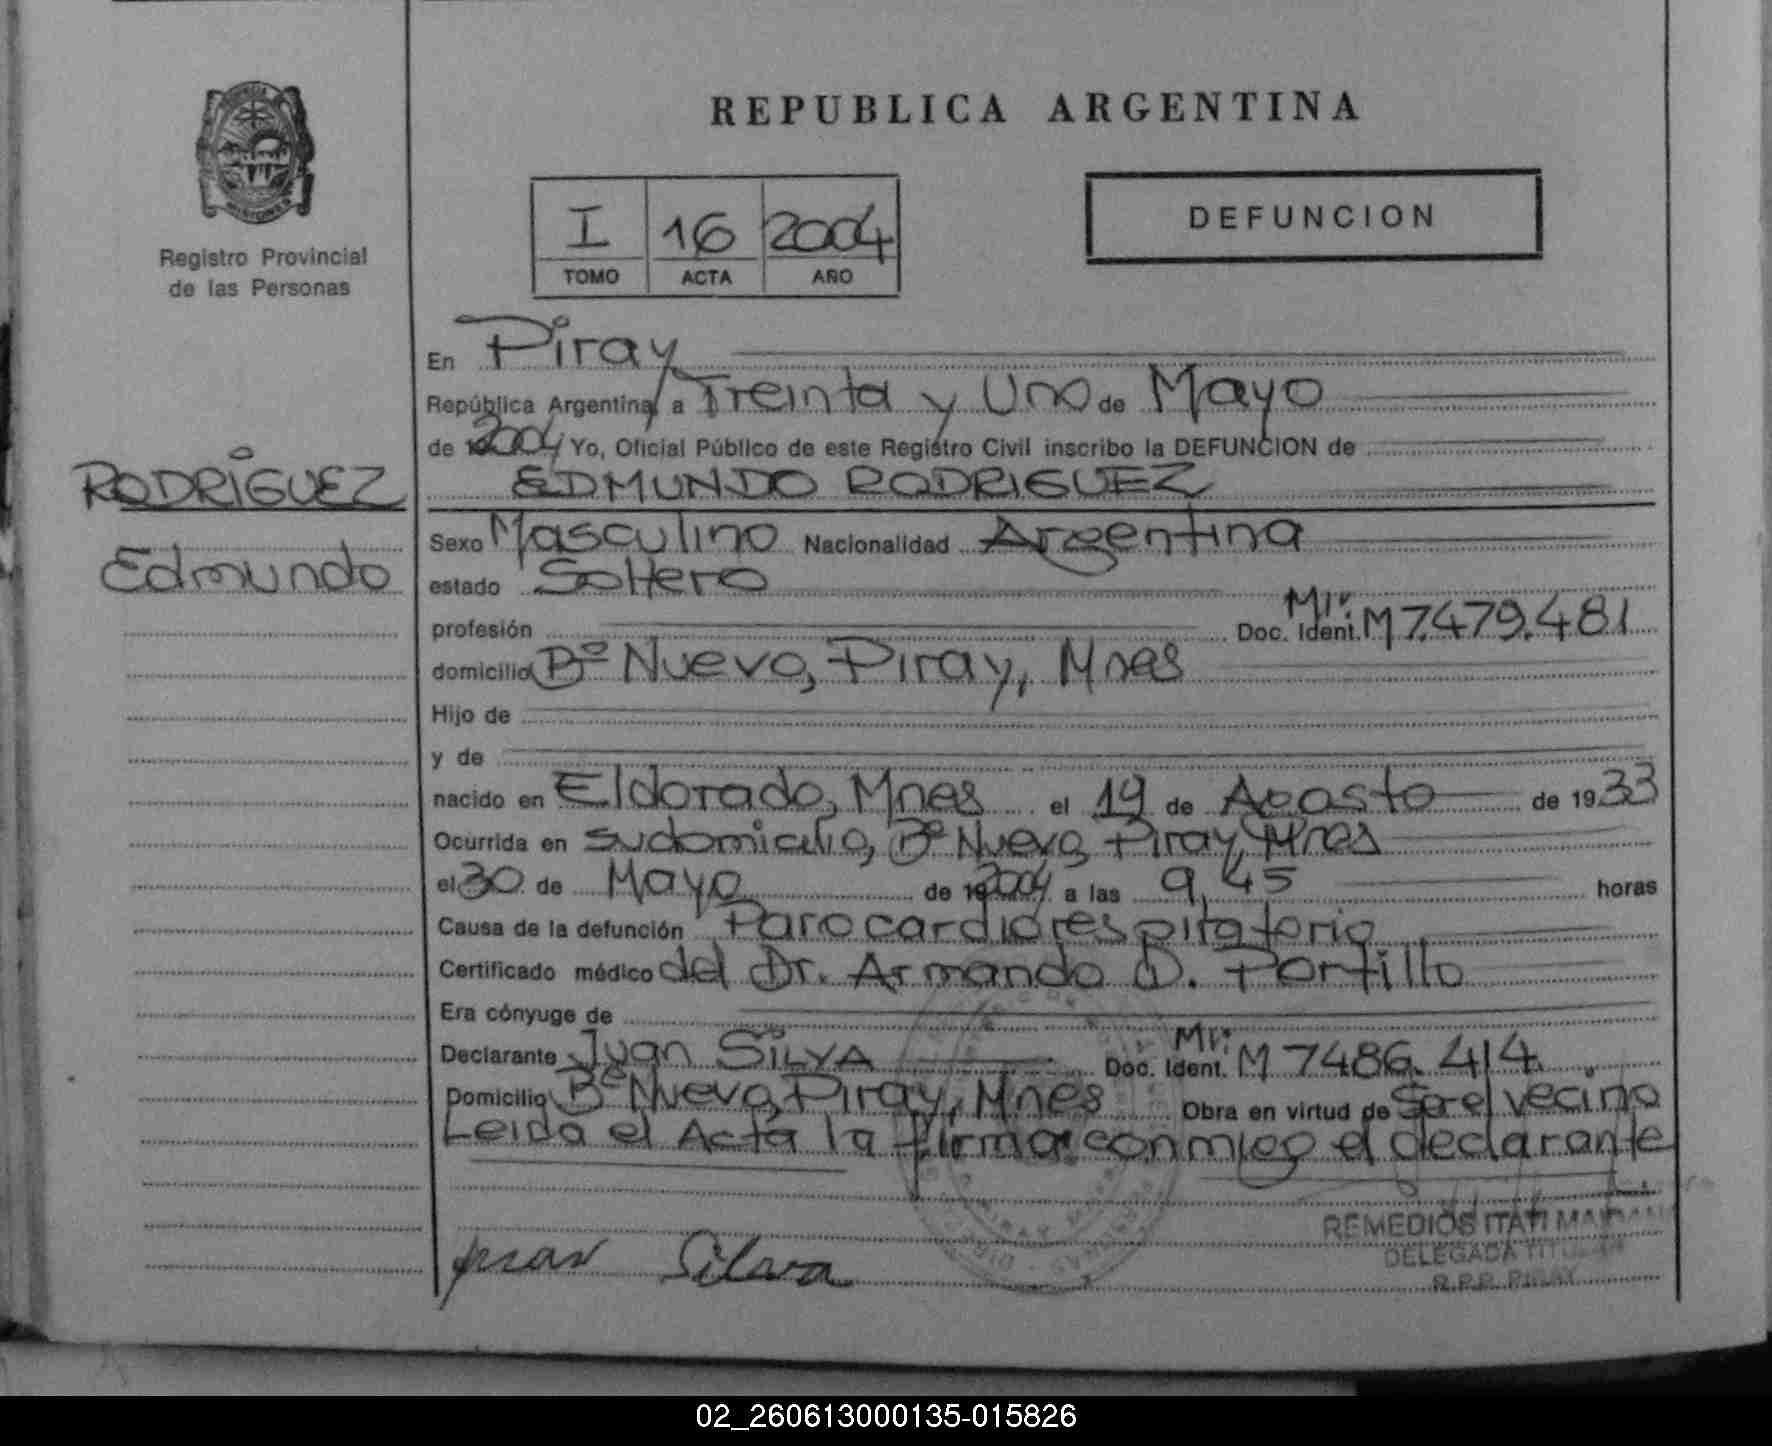 REPUBLICA ARGENTINA
DEFUNCION
Registro Provincial
de las Personas
I 16 2004
TOMO ACTA AÑO
En Piray
República Argentina, a Treinta y Uno de Mayo
de 2004 Yo, Oficial Público de este Registro Civil inscribo la DEFUNCION de
RODRIGUEZ
EDMUNDO RODRIGUEZ
Edmundo
Sexo Masculino Nacionalidad Argentina
estado Soltero
profesión Doc. Ident. Mi: M 7.479.481
domicilio Bº Nuevo, Piray, Mnes
Hijo de
y de
nacido en Eldorado, Mnes el 19 de Agosto de 1933
Ocurrida en su domicilio, Bº Nuevo, Piray, Mnes
el 30 de Mayo de 2004 a las 9,45 horas
Causa de la defunción Paro cardiorespiratorio
Certificado médico del Dr. Armando D. Portillo
Era cónyuge de
Declarante Juan SILVA Doc. Ident. Mi: M 7486.414
Domicilio Bº Nuevo, Piray, Mnes Obra en virtud de Ser el vecino
Leida el Acta la firma conmigo el declarante
juan Silva
REMEDIOS ITATI
DELEGADA TITULAR
R.P.P. PIRAY
02_260613000135-015826